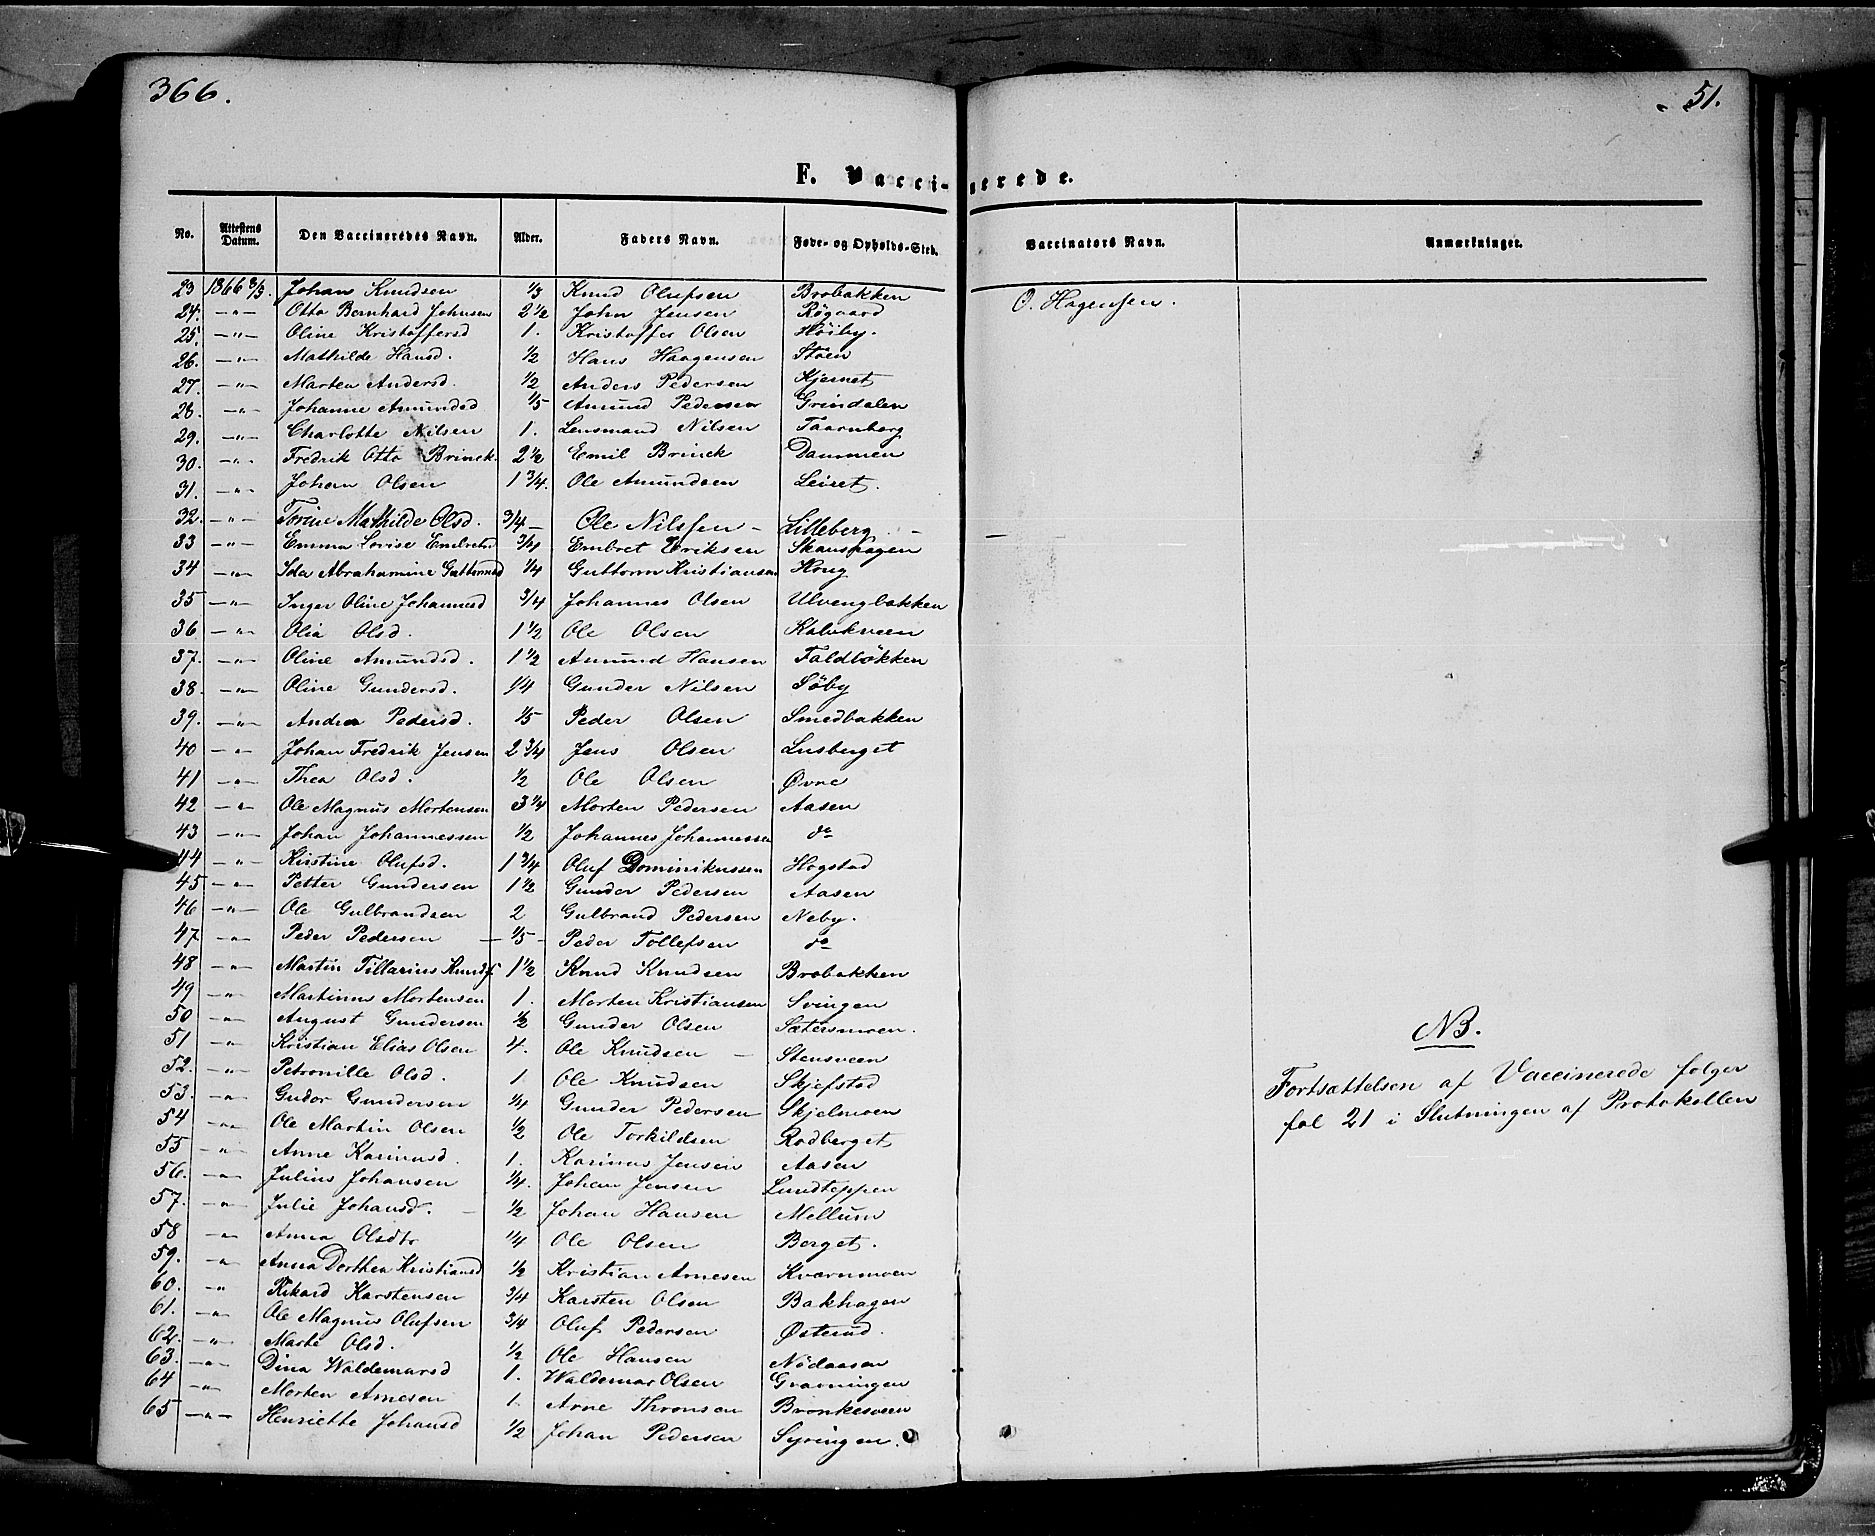 366.
51.
F. Vaccinerede.
No. Attestens Datum. Den Vaccineredes Navn. Alder. Faders Navn. Føde- og Opholds-Sted. Vaccinators Navn. Anmærkninger.
23 1866 8/3. Johan Knudsen 1/3 Knud Olufsen Brobakken O. Hagensen.
24. -"- Otto Bernhard Johnsen 2 1/2 John Jensen Røgaard
25. -"- Oline Kristoffersd 1. Kristoffer Olsen Høiby.
26. -"- Mathilde Hansd. 1/2 Hans Haagensen Støen
27. -"- Marthea Andersd. 1/2 Anders Pedersen Kjernet
28. -"- Johanne Amundsd 1/5 Amund Pedersen Grindalen
29. -"- Charlotte Nilsen 1. Lensmand Nilsen Taarnberg
30. -"- Fredrik Otto Brinck. 2 1/2 Emil Brinck Dammen
31. -"- Johan Olsen 1 3/4. Ole Amundsen Leiret.
32. -"- Torine Mathilde Olsd. 3/4 - Ole Nilssen - Lilleberg -
33 -"- Emma Lovise Embretsd 3/4 Embret Eriksen Skaushagen
34 -"- Ida Abrahamine Guttormsd 1/4 Guttorm Kristiansen Houg
35 -"- Inger Oline Johannesd 3/4 Johannes Olsen Ulvengbakken
36 -"- Olia Olsd. 1 1/2 Ole Olsen Kalvkveen
37. -"- Oline Amundsd. 1 1/2 Amund Hansen Faldbökken
38. -"- Oline Gundersd. 1/4 Gunder Nilsen Søby
39. -"- Andrea Pedersd. 1/5 Peder Olsen Smedbakken
40 -"- Johan Fredrik Jensen 2 3/4 Jens Olsen Lusberget
41 -"- Thea Olsd. 1/2 Ole Olsen Øvre
42 -"- Ole Magnus Mortensen 3 1/4 Morten Pedersen Aasen
43 -"- Johan Johannessen 1/2 Johannes Johannessen do
44 -"- Kirstine Olufsd. 1 3/4 Oluf Dominikussen Hogstad
45 -"- Petter Gundersen 1 1/2 Gunder Pedersen Aasen
46 -"- Ole Gulbrandsen 2 Gulbrand Pedersen Neby.
47 -"- Peder Pedersen - 1/5 - Peder Tollefsen do
48 -"- Martin Tillarius Knuds. 1 1/2 Knud Knudsen Brobakken
49 -"- Martinus Mortensen 1. Morten Kristiansen Svingen
50 -"- August Gundersen 1/2 Gunder Olsen Sætersmoen.
51 -"- Kristian Elias Olsen 4. Ole Knudsen - Stensveen
52. -"- Petronille Olsd. 1 Ole Knudsen Skjefstad
53. -"- Gudor Gundersen 1/4 Gunder Pedersen Skjelmoen
54 -"- Ole Martin Olsen 1/2 Ole Torkildsen Rodberget
55 -"- Anne Karinusd. 1. Karinus Jensen Aasen
56. -"- Julius Johansen 1/4. Johan Jensen Lundteppen
57. -"- Julie Johansd. - 1/2 Johan Hansen Mellum
58 -"- Anna Olsdtr 1/4 Ole Olsen Berget.
59. -"- Anna Dorthea Kristiansd 1/2 Kristian Arnesen Kværnmoen
60. " Rikard Karstensen 3/4 Karsten Olsen Bakhagen
61. -"- Ole Magnus Olufsen 3/4 Oluf Pedersen Østerud.
62. -"- Marte Olsd. 1/2 Ole Hansen Nödaasen
63. -"- Dina Waldemarsd 1. Waldemar Olsen Gravningen
64 -"- Morten Arnesen 1 Arne Thronsen Bronkesveen
65 -"- Henriette Johansd 1/2 Johan Pedersen Syringen.
NB.
Fortsættelsen af Vaccinerede følger
fol 21 i Slutningen af Protokollen